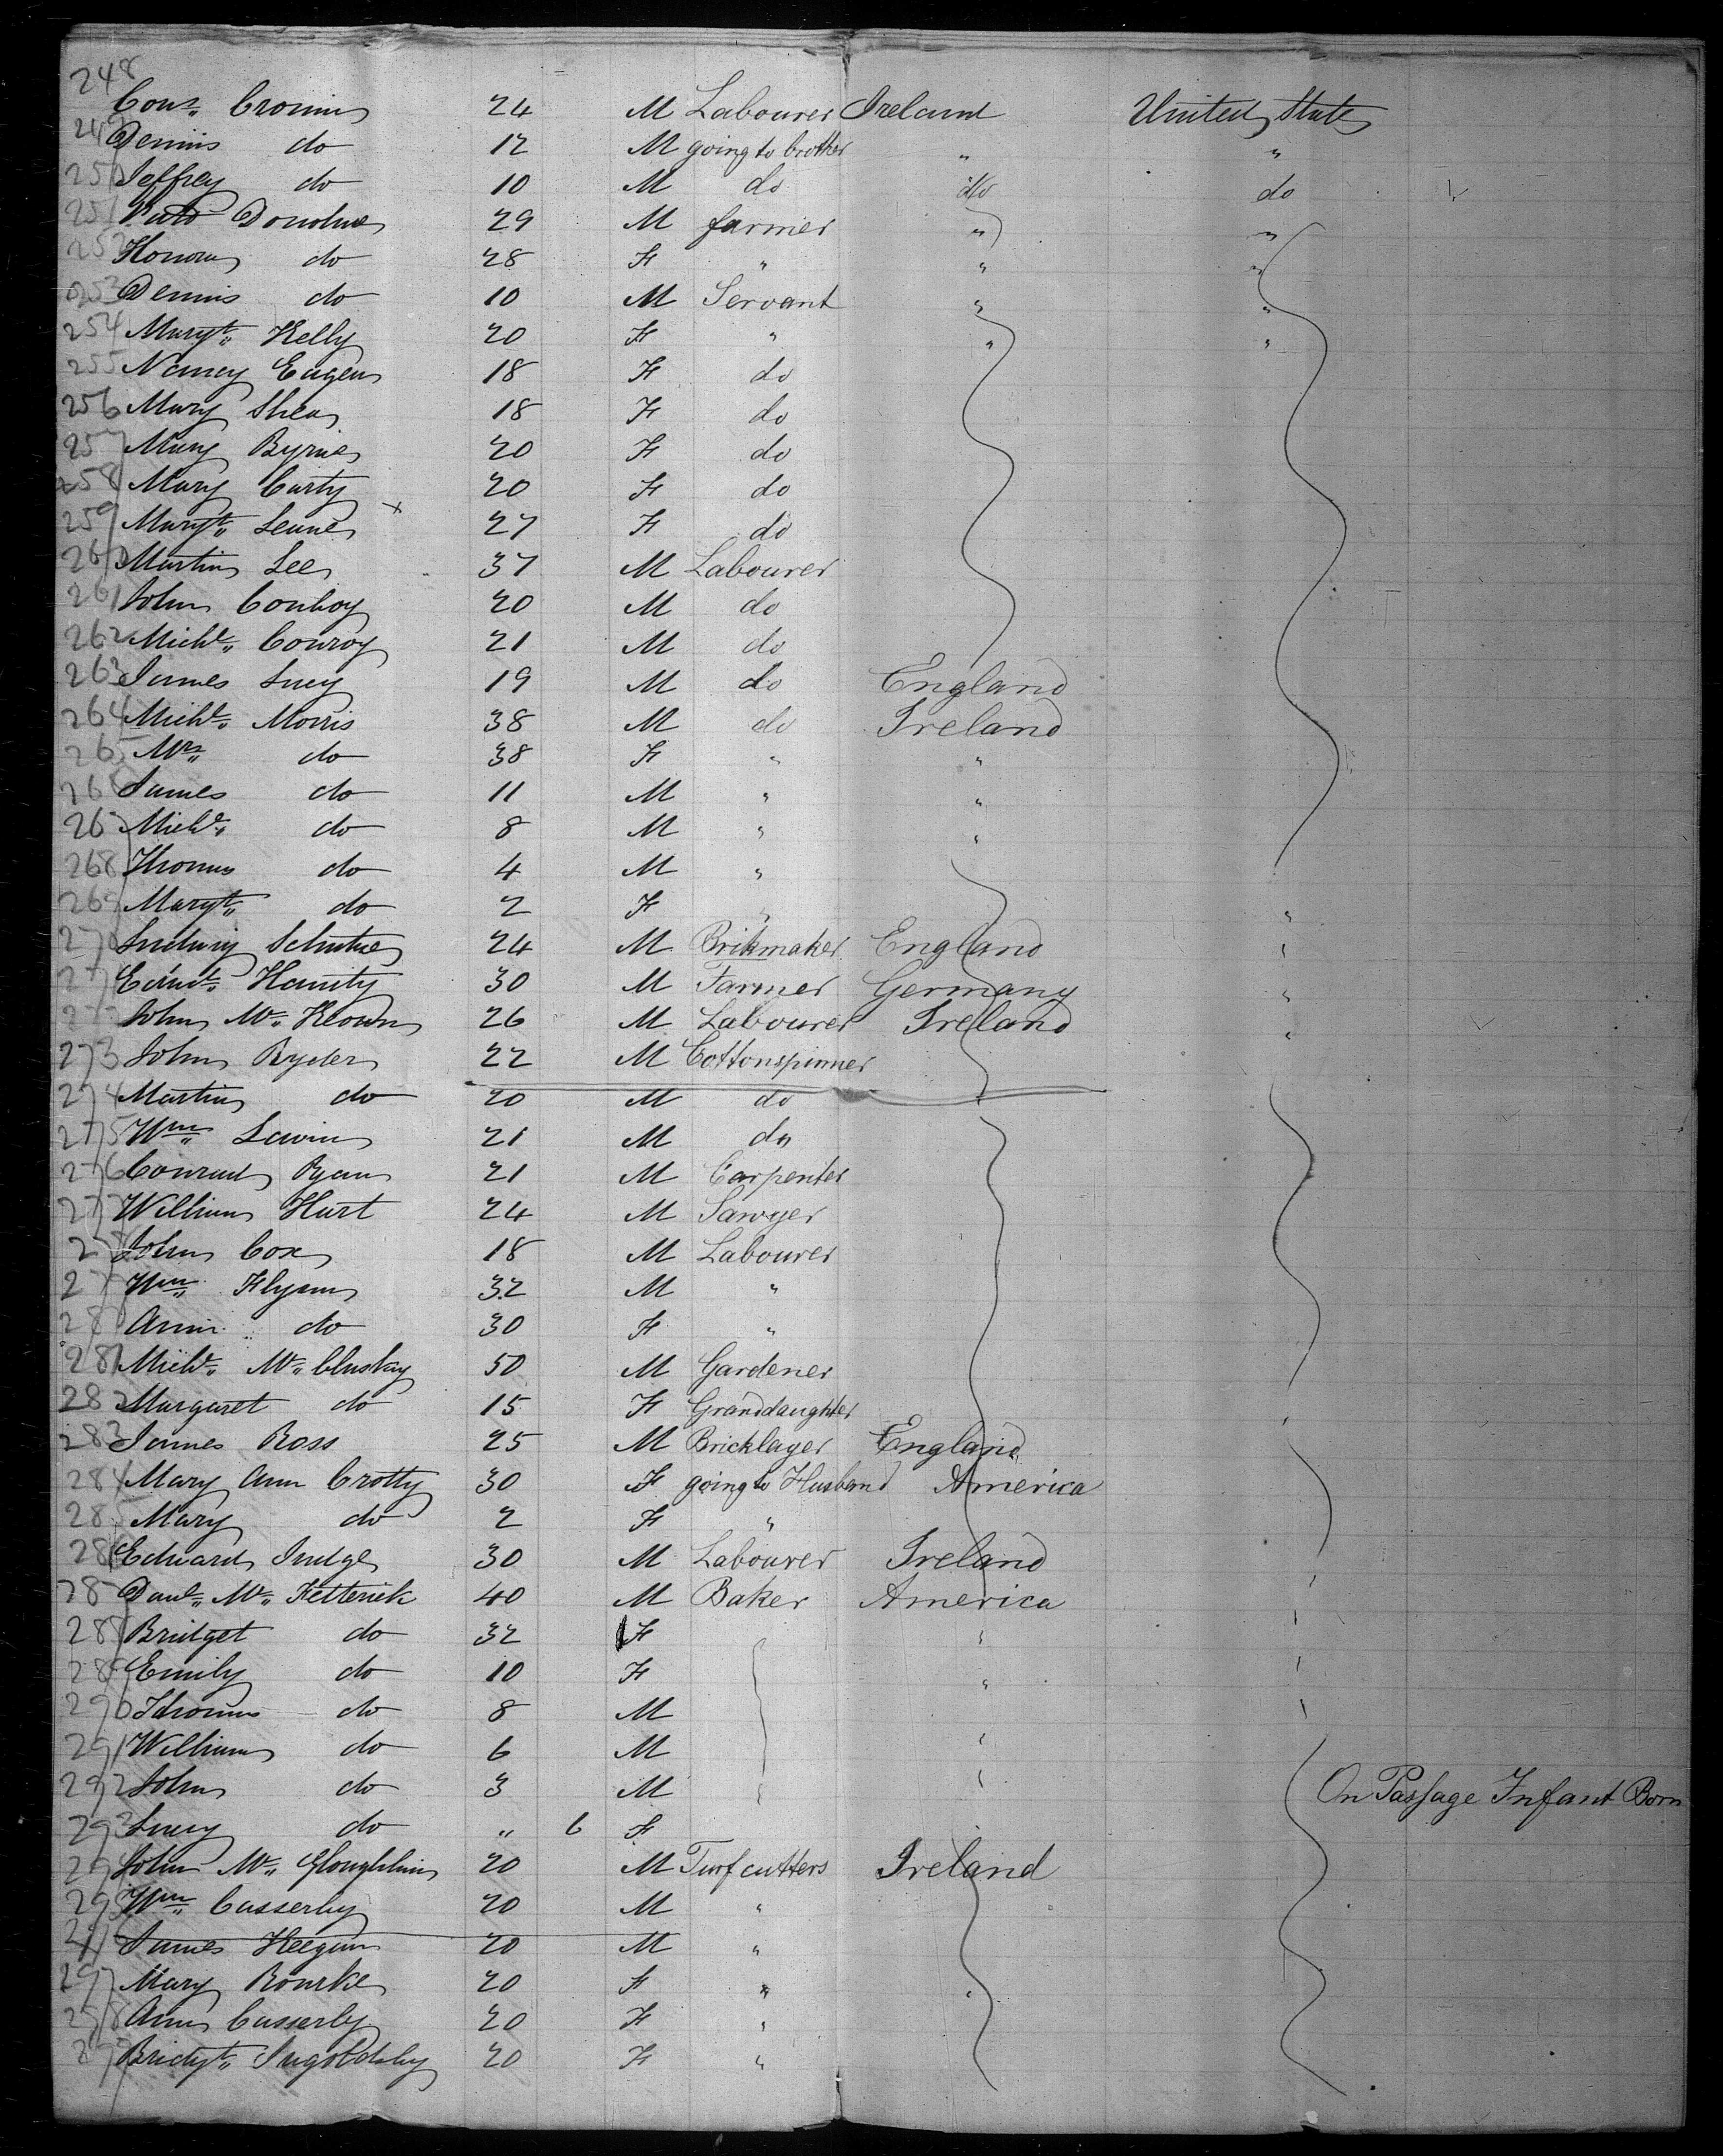 248 Cons. Cronin 24 M Labourer Ireland United States
249 Dennis do 12 M going to brother " "
250 Jeffrey do 10 M do do do
251 Donohue 29 M farmer " "
252 Honora do 28 F " " "
253 Dennis do 10 M Servant " "
254 Margt. Kelly 20 F " " "
255 Nancy Eagen 18 F do
256 Mary Shea 18 F do
257 Mary Byrne 20 F do
258 Mary Carty 20 F do
259 Margt. Leane x 27 F do
260 Martin Lee 37 M Labourer
261 John Conboy 20 M do
262 Michl. Conroy 21 M do
263 James Lucy 19 M do England
264 Michl. Morris 38 M do Ireland
265 Mrs do 38 F " "
266 James do 11 M " "
267 Michl. do 8 M " "
268 Thomas do 4 M "
269 Margt. do 2 F " "
270 Ludwig Schutze 24 M Brikmaker England
271 Edmd. Hanity 30 M Farmer Germany "
272 John Mc. Keown 26 M Labourer Ireland "
273 John Ryder 22 M Cottonspinner
274 Martin do 20 M do
275 Wm. Lavin 21 M do
276 Conrad Ryan 21 M Carpenter
277 William Hart 24 M Sawyer
278 John Cox 18 M Labourer
279 Wm. Flynn 32 M "
280 Ann do 30 F "
281 Michl. Mc. Cluskey 50 M Gardener
282 Margaret do 15 F Granddaughter
283 James Ross 25 M Bricklayer England
284 Mary Ann Crotty 30 F going to Husband America
285 Mary do 2 F "
286 Edward Judge 30 M Labourer Ireland
287 Danl. Mc. Fetterick 40 M Baker America
288 Bridget do 32 F "
289 Emily do 10 F "
290 Thomas do 8 M
291 William do 6 M "
292 John do 3 M " On Passage Infant Born
293 Lucy do " 6 F
294 John Mc. Gloughlin 20 M Turfcutters Ireland
295 Wm. Casserly 20 M "
296 James Keegan 20 M "
297 Mary Rourke 20 F " "
298 Ann Casserly 20 F "
299 Bridgt. Ingoldsby 20 F "